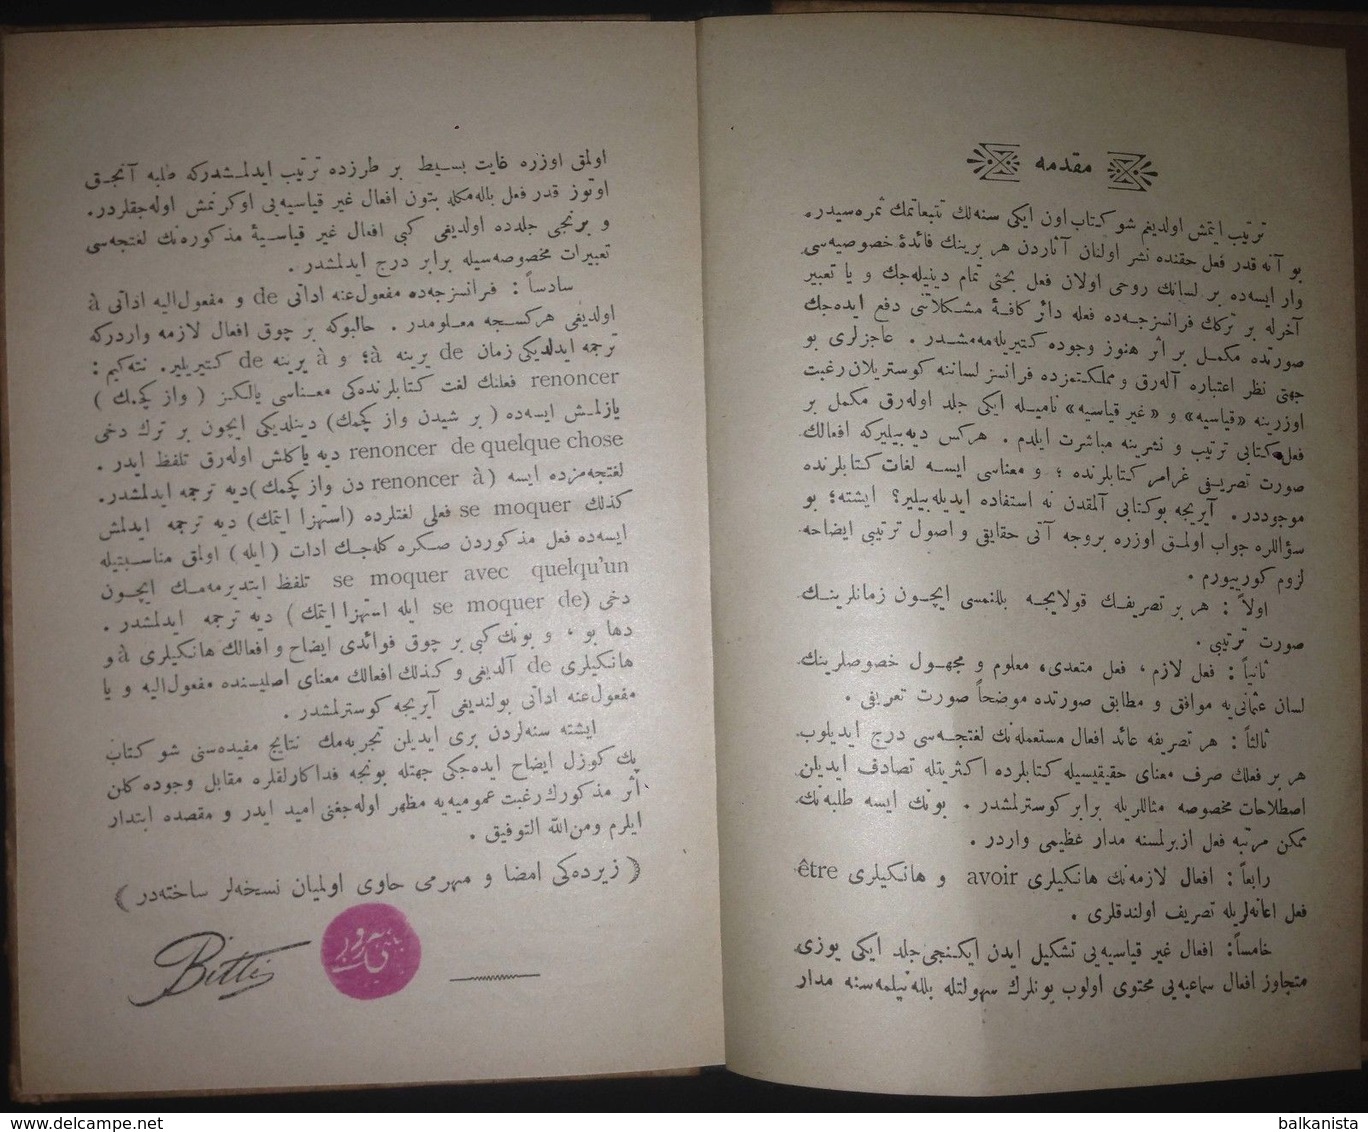 مقدمه
ترتیب ایتمش اولدیغم شو کیتاب اون ایکی سنه‌لك تتبعاتمك ثمره‌سیدر.
بو آنه قدر فعل حقنده نشر اولنان آثاردن هر برینك فائدهٔ خصوصیه‌سی
وار ایسه‌ده بر لسانك روحی اولان فعل بحثی تمام دینیله‌جك و یا تعبیر
آخرله بر تركك فرانسزجه‌ده فعله دائر كافهٔ مشكلاتنی دفع ایده‌جك
صورتده مكمل بر اثر هنوز وجوده كتیریله‌مه‌مشدر. عاجزلری بو
جهتی نظر اعتباره آله‌رق و مملكتمزده فرانسز لساننه كوستریلان رغبت
اوزرینه «قیاسیه» و «غیر قیاسیه» نامیله ایكی جلد اوله‌رق مكمل بر
فعل كتابی ترتیب و نشرینه مباشرت ایلدم. هركس دیه‌بیلیركه افعالك
صورت تصریفی غرامر كتابلرنده ؛ و معناسی ایسه لغات كتابلرنده
موجوددر. آیریجه بو كتابی آلمقدن نه استفاده ایدیله‌بیلیر؟ ایشته؛ بو
سؤاللره جواب اولمق اوزره بروجه آتی حقایقی و اصول ترتیبی ایضاحه
لزوم كوریبورم .
اولاً : هر بر تصریفك قولایجه بللنمسی ایچون زمانلرینك
صورت ترتیبی .
ثانیاً : فعل لازم، فعل متعدی، معلوم و مجهول خصوصلرینك
لسان عثمانی‌یه موافق و مطابق صورتده موضحاً صورت تعریفی .
ثالثاً : هر تصریفه عائد افعال مستعمله‌نك لغتجه‌سی درج ایدیلوب
هر بر فعلك صرف معنای حقیقیسیله كتابلرده اكثریتله تصادف ایدیلن
اصطلاحات مخصوصه مثاللریله برابر كوسترلمشدر . بونك ایسه طلبه‌نك
ممكن مرتبه فعل ازبرلمسنه مدار عظیمی واردر .
رابعاً : افعال لازمه‌نك هانكیلری avoir و هانكیلری être
فعل اعانه‌لریله تصریف اولندقلری .
خامساً: افعال غیر قیاسیه‌یی تشكیل ایدن ایكنجی جلد ایكی یوزی
متجاوز افعال سماعیه‌یی محتوی اولوب بونلرك سهولتله بللنیلمه‌سنه مدار
اولمق اوزره غایت بسیط بر طرزده ترتیب ایدلمشدركه طلبه آنجق
اوتوز قدر فعل بالمكله بتون افعال غیر قیاسیه‌یی اوكرنمش اوله‌جقلردر.
و برنجی جلدده اولدیغی كبی افعال غیر قیاسیهٔ مذكوره‌نك لغتجه‌سی
تعبیرات مخصوصه‌سیله برابر درج ایدلمشدر .
سادساً : فرانسزجه‌ده مفعول‌عنه اداتی de و مفعول‌الیه اداتی à
اولدیغی هركسجه معلومدر . حالبوكه بر چوق افعال لازمه واردركه
ترجمه ایدلدیكی زمان de یرینه à؛ و à یرینه de كتیریلیر. نته‌كیم :
renoncer فعلنك لغت كتابلرنده‌كی معناسی یالكز ( واز كچمك )
یازلمش ایسه‌ده ( بر شیدن واز كچمك) دینلدیكی ایچون بر ترك دخی
renoncer de quelque chose دیه یاكلش اوله‌رق تلفظ ایدر .
لغتجه‌مزده ایسه (renoncer à دن واز كچمك) دیه ترجمه ایدلمشدر.
كذلك se moquer فعلی لغتلرده (استهزا ایتمك) دیه ترجمه ایدلمش
ایسه‌ده فعل مذكوردن صكره كله‌جك ادات ( ایله ) اولمق مناسبتیله
se moquer avec quelqu'un تلفظ ایتدیرمه‌مك ایچون
دخی (se moquer de ایله استهزا ایتمك ) دیه ترجمه ایدلمشدر .
دها بو ، و بونك كبی بر چوق فوائدی ایضاح و افعالك هانكیلری à و
هانكیلری de آلدیغی و كذلك افعالك معنای اصلیسنده مفعول‌الیه و یا
مفعول‌عنه اداتی بولندیغی آیریجه كوسترلمشدر .
ایشته سنه‌لردن بری ایدیلن تجربه‌مك نتایج مفیده‌سنی شو كتاب
پك كوزل ایضاح ایده‌جكی جهتله بونجه فداكارلقلره مقابل وجوده كلن
أثر مذكورك رغبت عمومیه‌یه مظهر اوله‌جغنی امید ایدر و مقصده ابتدار
ایلرم ومن‌الله التوفیق .
( زیرده‌كی امضا و مهرمی حاوی اولمیان نسخه‌لر ساخته‌در )
Bitti
balkanista